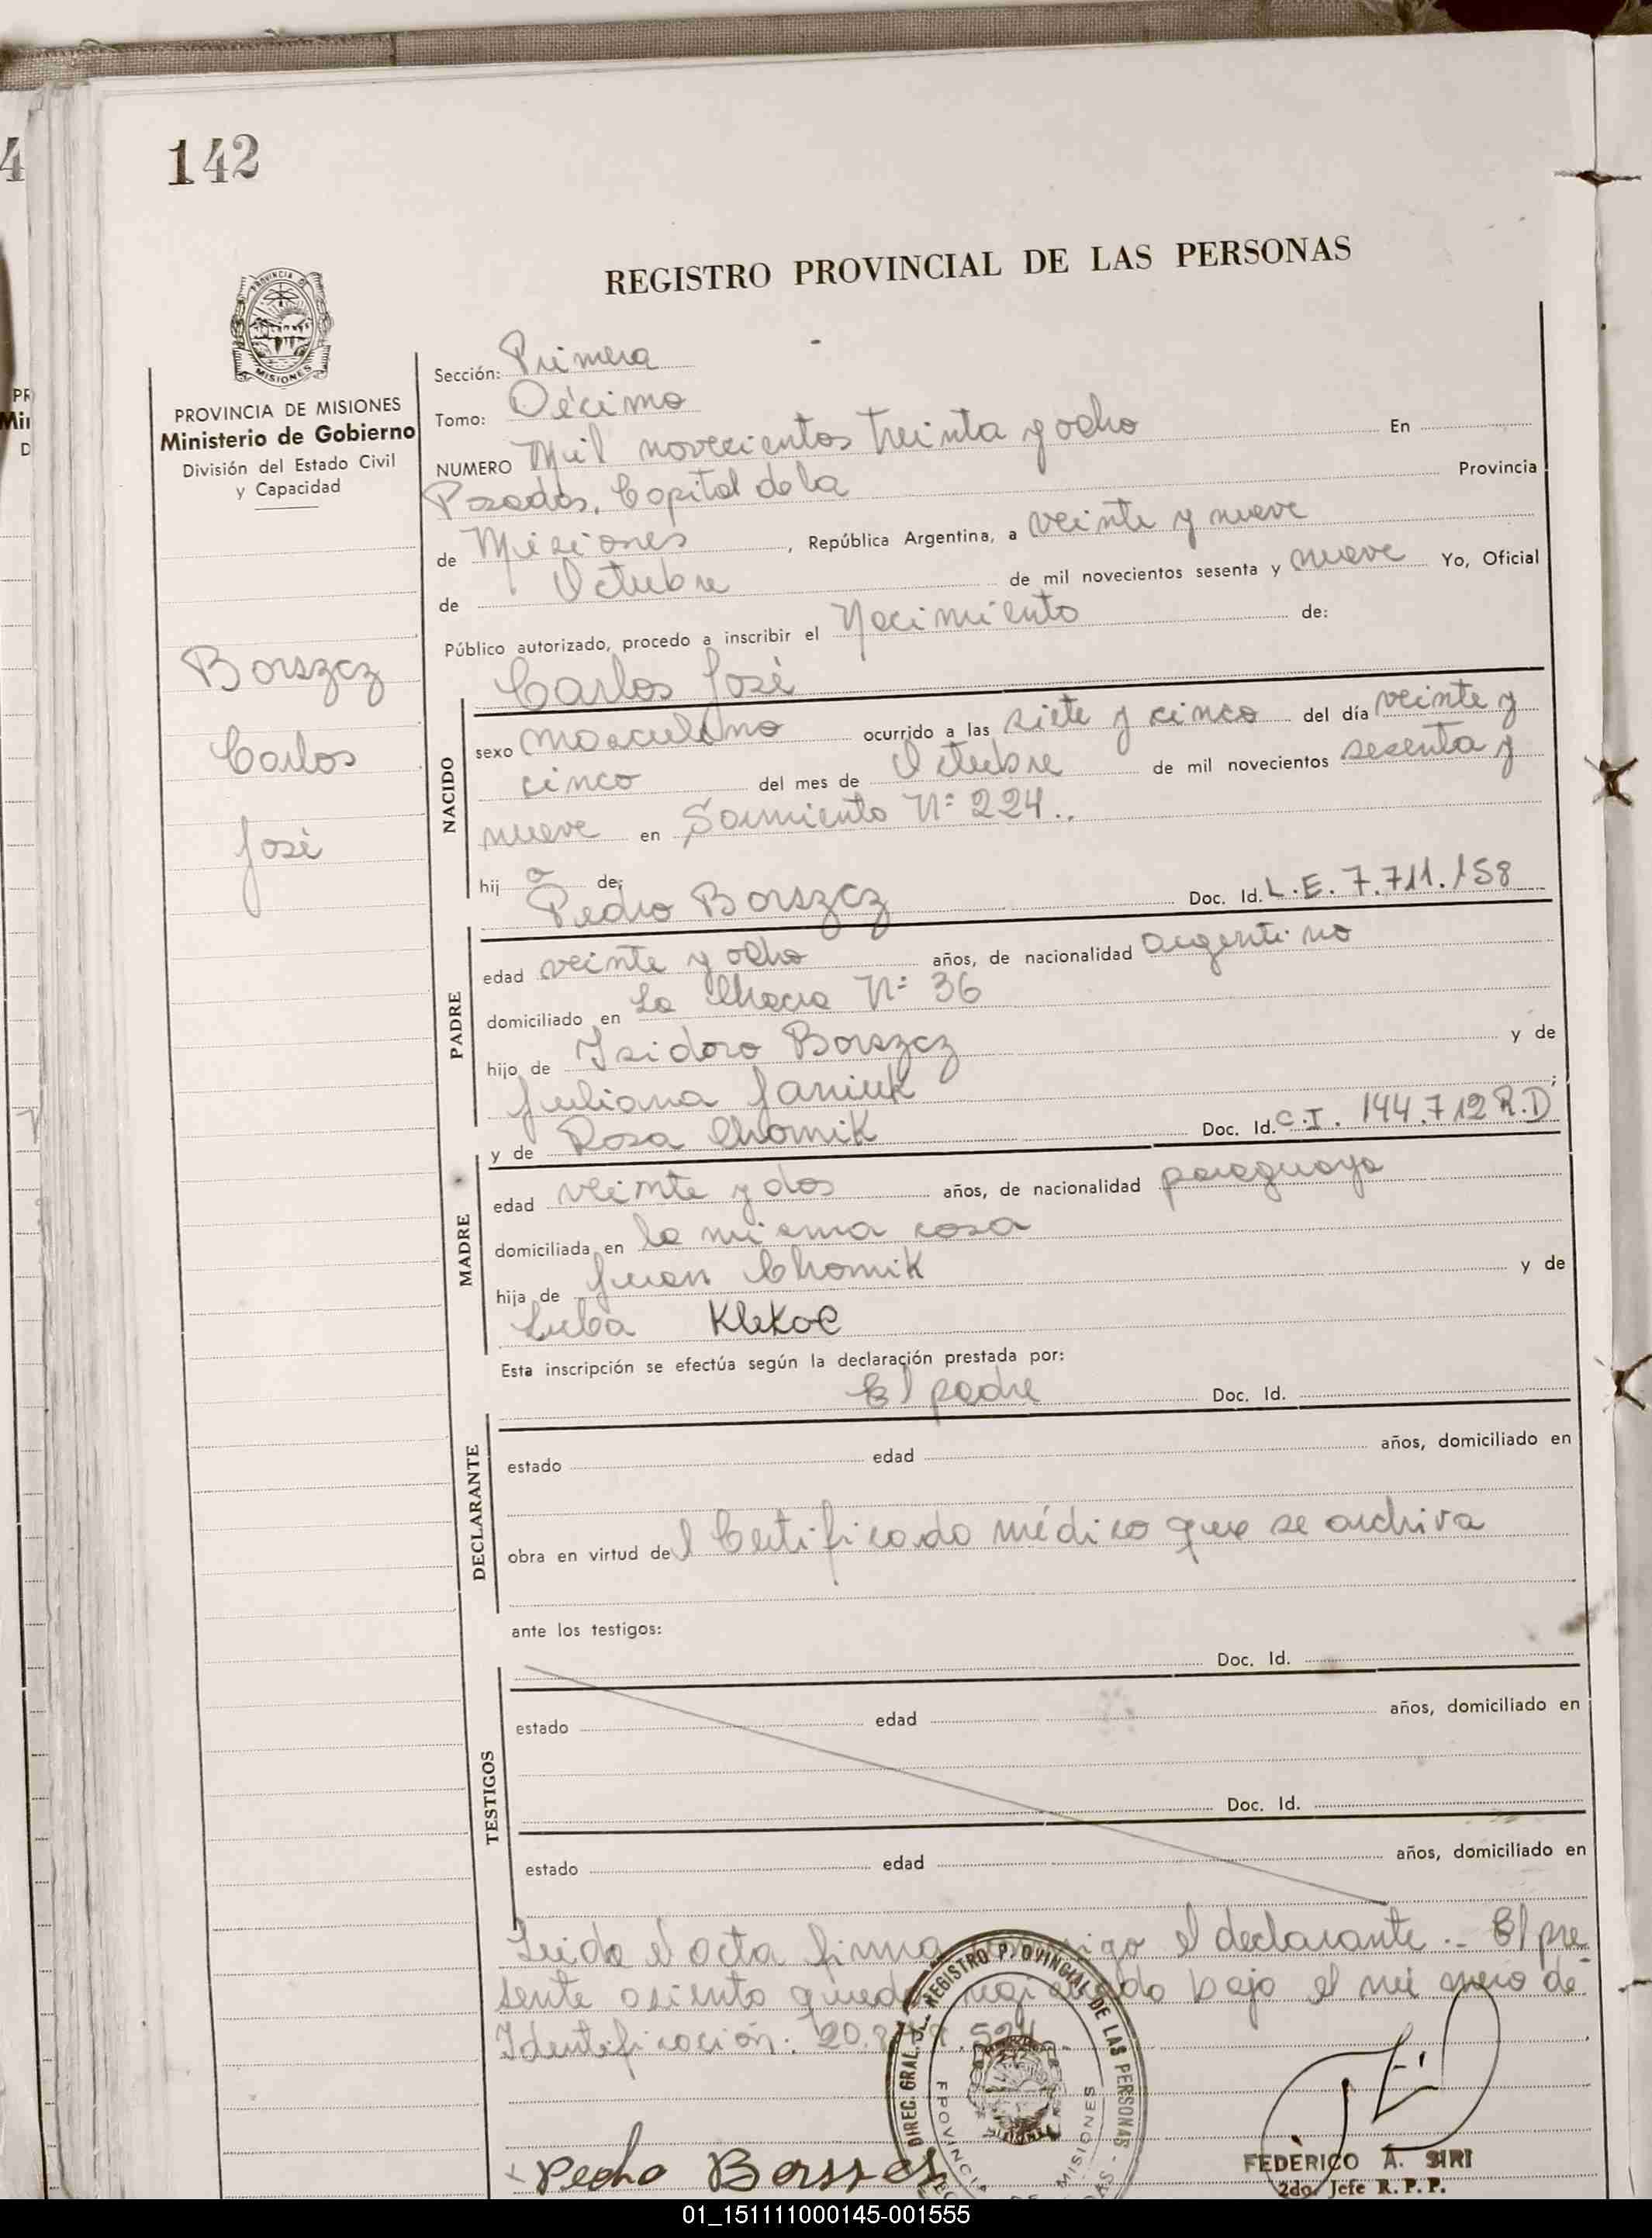 142
REGISTRO PROVINCIAL DE LAS PERSONAS
PROVINCIA DE
MISIONES
PROVINCIA DE MISIONES
Ministerio de Gobierno
División del Estado Civil
y Capacidad
Borszcz
Carlos
José
Sección: Primera
Tomo: Décimo
NUMERO Mil novecientos treinta y ocho En
Posadas, Capital de la Provincia
de Misiones, República Argentina, a veinte y nueve
de Octubre de mil novecientos sesenta y nueve Yo, Oficial
Público autorizado, procedo a inscribir el Nacimiento de:
Carlos José
NACIDO
sexo masculino ocurrido a las siete y cinco del día veinte y
cinco del mes de Octubre de mil novecientos sesenta y
nueve en Sarmiento Nº 224..
hij o de:
Pedro Borszcz Doc. Id. L.E. 7.711.158
PADRE
edad veinte y ocho años, de nacionalidad argentino
domiciliado en La Chacra Nº 36
hijo de Isidoro Borszcz y de
Juliana Janiuk ;
y de Rosa Chomik Doc. Id. C.I. 144.712 R.D
MADRE
edad veinte y dos años, de nacionalidad paraguaya
domiciliada en la misma casa
hija de Juan Chomik y de
Luba Klekoc
Esta inscripción se efectúa según la declaración prestada por:
El padre Doc. Id.
DECLARANTE
estado edad años, domiciliado en
obra en virtud del Certificado médico que se archiva
ante los testigos:
Doc. Id.
TESTIGOS
estado edad años, domiciliado en
Doc. Id.
estado edad años, domiciliado en
Leida el acta firma conmigo el declarante.- El pre
sente asiento queda registrado bajo el número de
Identificación:
DIREC. GRAL. REGISTRO PROVINCIAL DE LAS PERSONAS
MISIONES
Pedro Borszcz
FEDERICO A. SIRI
2do. Jefe R.P.P.
01_151111000145-001555